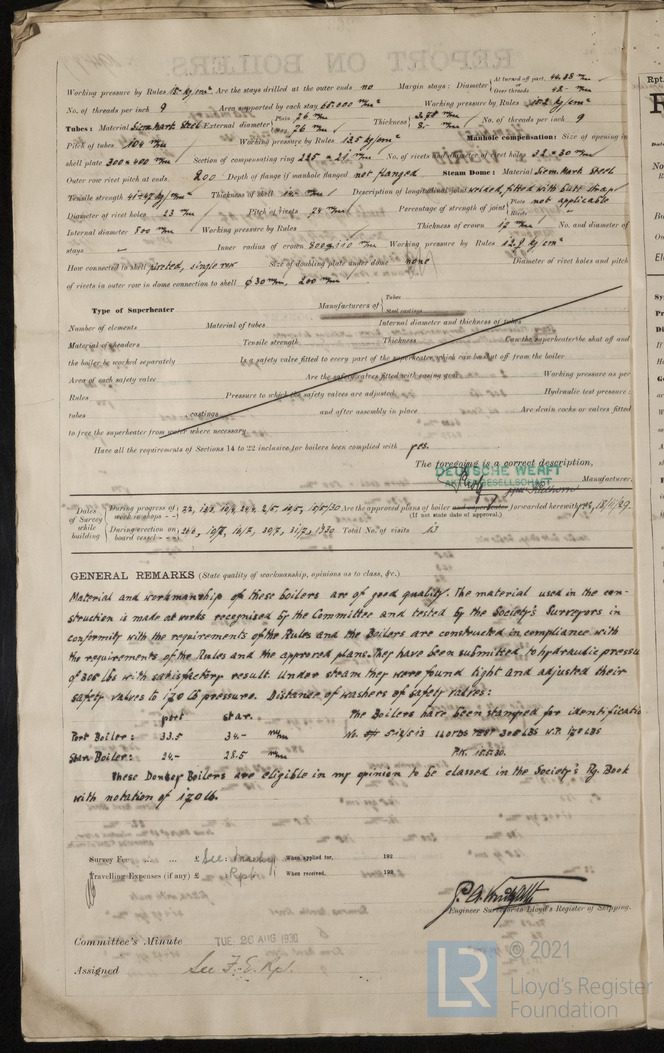 Working pressure by Rules 15 kg/cm² Are the stays drilled at the outer ends no Margin stays: Diameter At turned off part, Over threads
No. of threads per inch 9 Area supported by each stay Working pressure by Rules
Tubes: Material Siem. Mart. Steel External diameter Plain 76 m/m Stay 76 m/m Thickness No. of threads per inch 9
Pitch of tubes 104 m/m Working pressure by Rules Manhole compensation: Size of opening in
shell plate 300 × 400 m/m Section of compensating ring No. of rivets and diameter of rivet holes 32 × 30 m/m
Outer row rivet pitch at ends 200 Depth of flange if manhole flanged not flanged Steam Dome: Material Siem. Mart. Steel
Tensile strength 41-47 kg/m/m² Thickness of shell Description of longitudinal joint welded, fitted with butt strap
Diameter of rivet holes 23 m/m Pitch of rivets Percentage of strength of joint Plate Rivets not applicable
Internal diameter 800 m/m Working pressure by Rules Thickness of crown No. and diameter of
stays Inner radius of crown Working pressure by Rules
How connected to shell riveted, single row Size of doubling plate under dome none Diameter of rivet holes and pitch
of rivets in outer row in dome connection to shell ø 30 m/m, 200 m/m
Type of Superheater Manufacturers of Tubes Steel castings
Number of elements Material of tubes Internal diameter and thickness of tubes
Material of headers Tensile strength Thickness Can the superheater be shut off and
the boiler be worked separately Is a safety valve fitted to every part of the superheater which can be shut off from the boiler
Area of each safety valve Are the safety valves fitted with easing gear Working pressure as per
Rules Pressure to which the safety valves are adjusted Hydraulic test pressure:
tubes castings and after assembly in place Are drain cocks or valves fitted
to free the superheater from water where necessary
Have all the requirements of Sections 14 to 22 inclusive for boilers been complied with yes.
The foregoing is a correct description,
DEUTSCHE WERFT
AKTIENGESELLSCHAFT Manufacturer.
Dates of Survey while building During progress of work in shops Are the approved plans of boiler and superheater forwarded herewith
(If not state date of approval.)
During erection on board vessel 1930 Total No. of visits 13
GENERAL REMARKS (State quality of workmanship, opinions as to class, &c.)
Material and workmanship of these boilers are of good quality. The material used in the con-
struction is made at works recognised by the Committee and tested by the Society's Surveyors in
conformity with the requirements of the Rules and the Boilers are constructed in compliance with
the requirements of the Rules and the approved plans. They have been submitted to hydraulic pressu
of 305 lbs with satisfactory result. Under steam they were found tight and adjusted their
safety valves to 170 lb pressure. Distance of washers of safety valves:
port star. The Boilers have been stamped for identificatio
Port Boiler: 33.5 34.- m/m LLOYDS TEST W.P. 170 LBS
Star. Boiler: 24.- 28.5 m/m P.K. 15.5.30.
These Donkey Boilers are eligible in my opinion to be classed in the Society's Rg. Book
with notation of 170 lb.
Survey Fee £ See: Machy When applied for, 192
Travelling Expenses (if any) £ Rpt. When received, 192
Engineer Surveyor to Lloyd's Register of Shipping.
Committee's Minute TUE. 26 AUG 1930
Assigned See F. E. Rpt.
LR
© 2021
Lloyd's Register
Foundation